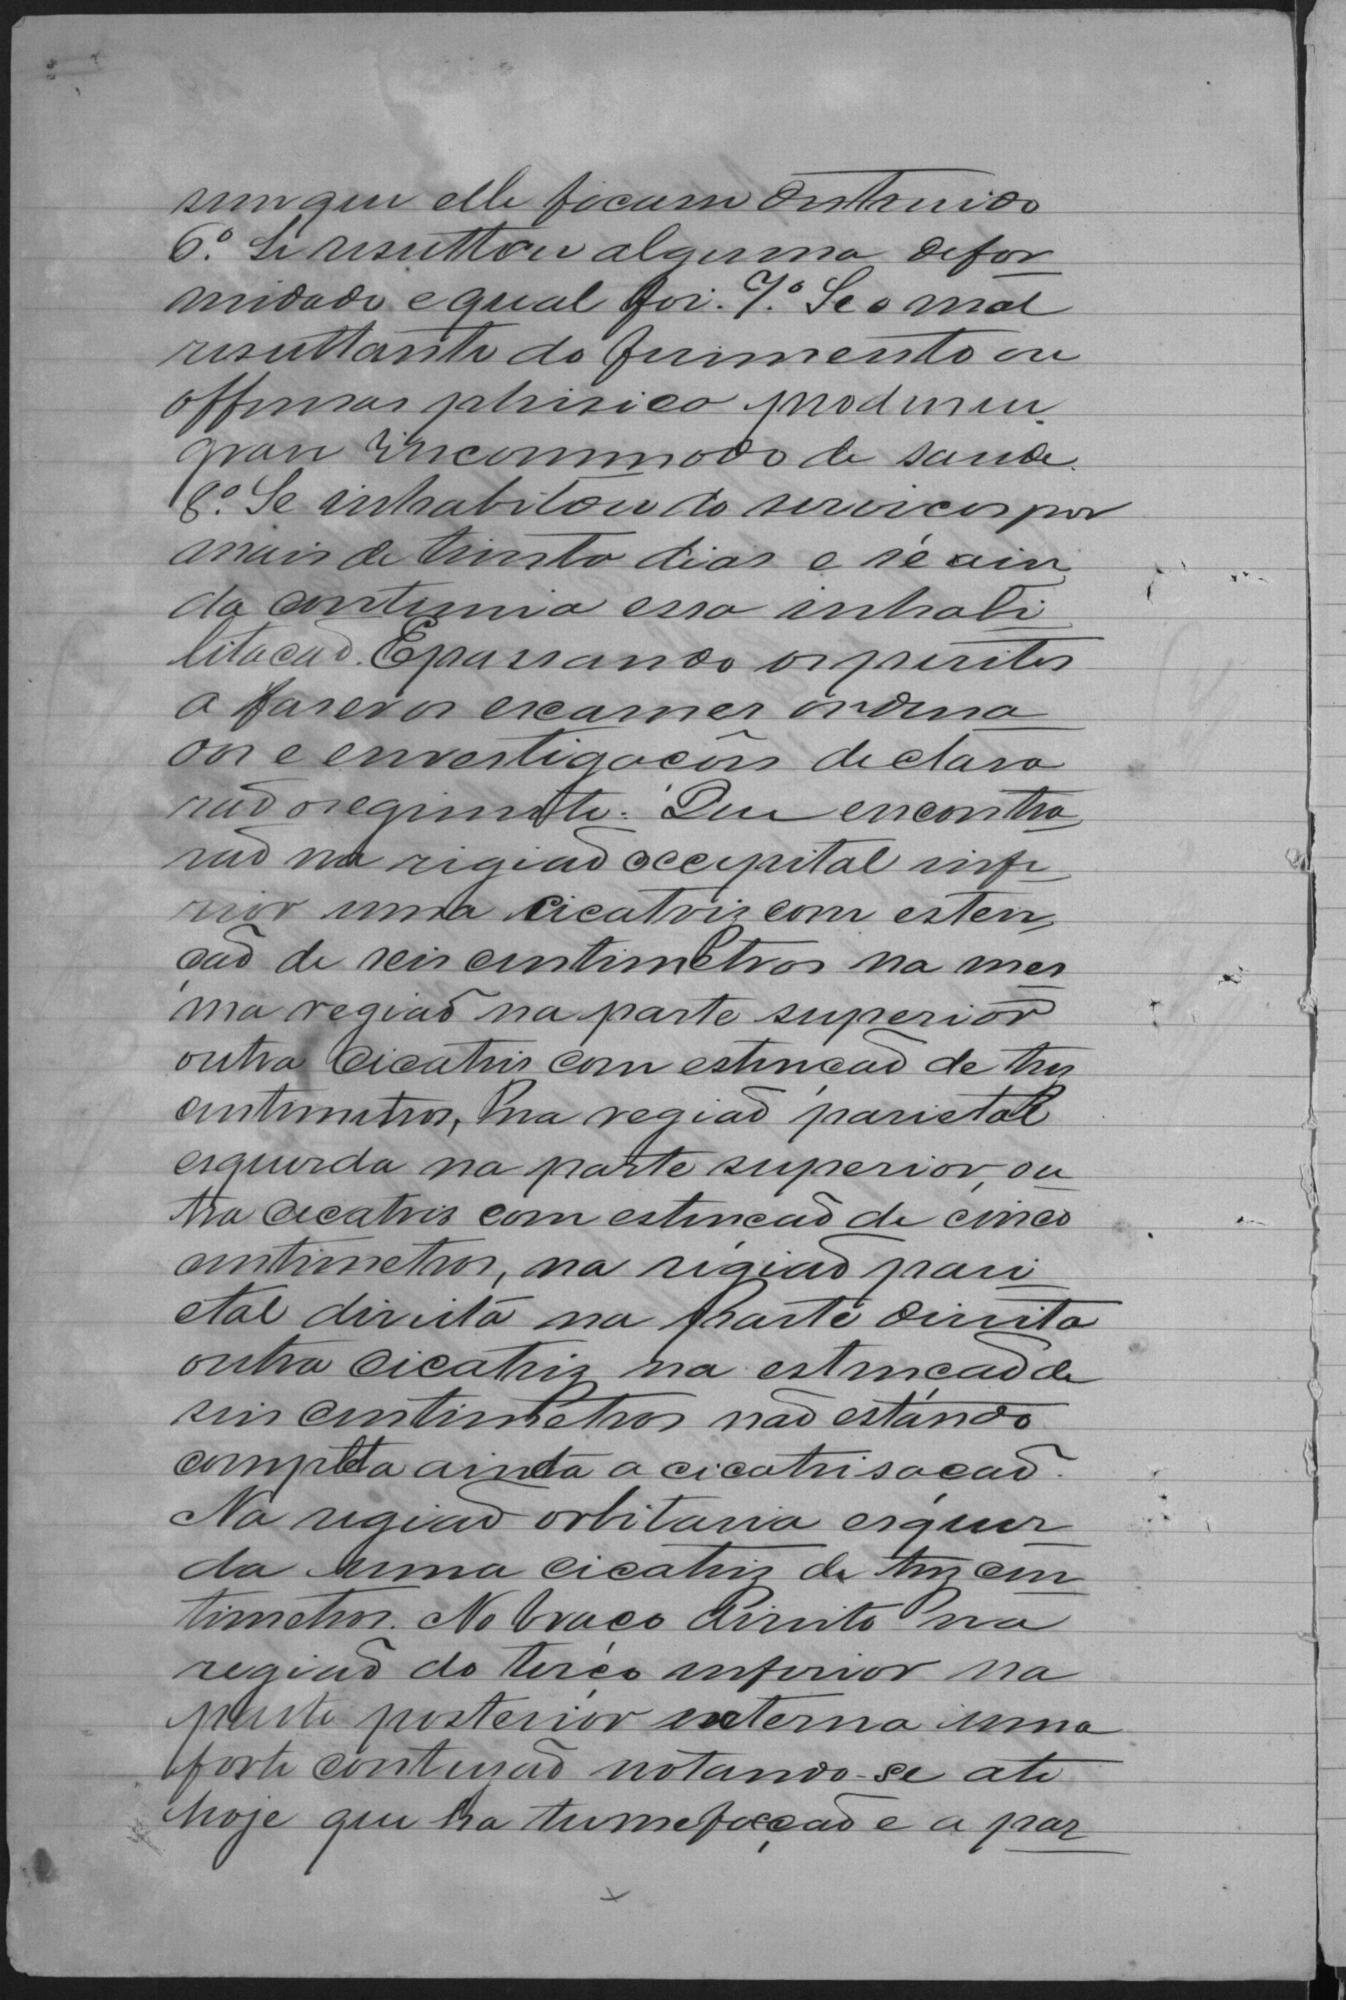 sem que elle ficasse destruido
6.º Se resultou alguma defor
midade e qual foi. 7.º Se o mal
resultante do ferimento ou
offensas phisica produsiu
grave incommodo de saude.
8.º Se inhabitou do servicos por
mais de trinta dias e sé ain
da continuia essa inhabi
litacaõ. E passando os peritos
a faser os exames ordena
dos e envestigacões declara
raõ o seguinte: Que encontra
raõ na rigiaõ occipital infe
rior uma cicatriz com esten
çaõ de seis centimetros na mes
ma regiaõ na parte superior
outra cicatris com estencaõ de tres
centimetros, na regiaõ parietal
esquerda na parte superior, ou
tra cicatris com estencaõ de cinco
centimetros, na rigiaõ pari
etal direita na parte direita
outra cicatriz na estencaõ de
seis centimetros naõ estando
completa ainda a cicatrisacaõ.
Na regiaõ orbitaria esquer
da uma cicatriz de trez cen
timetros. No braco direito na
regiaõ do terço inferior na
parte posterior externa uma
forte contusaõ notando-se ate
hoje que ha tumefacçaõ e a par